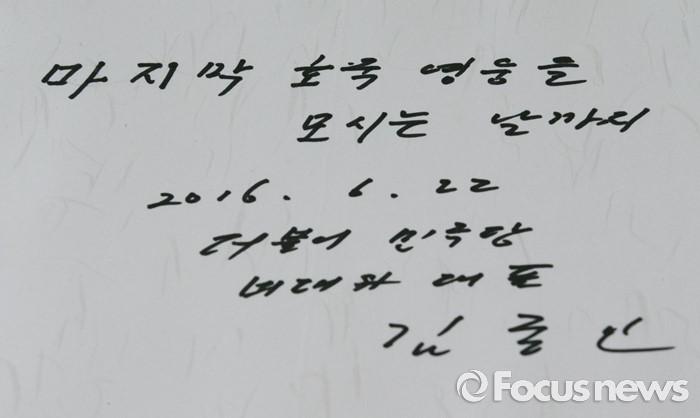 마지막 호국 영웅을
모시는 날까지
2016. 6. 22
더불어 민주당
비대위 대표
김종인
Focusnews